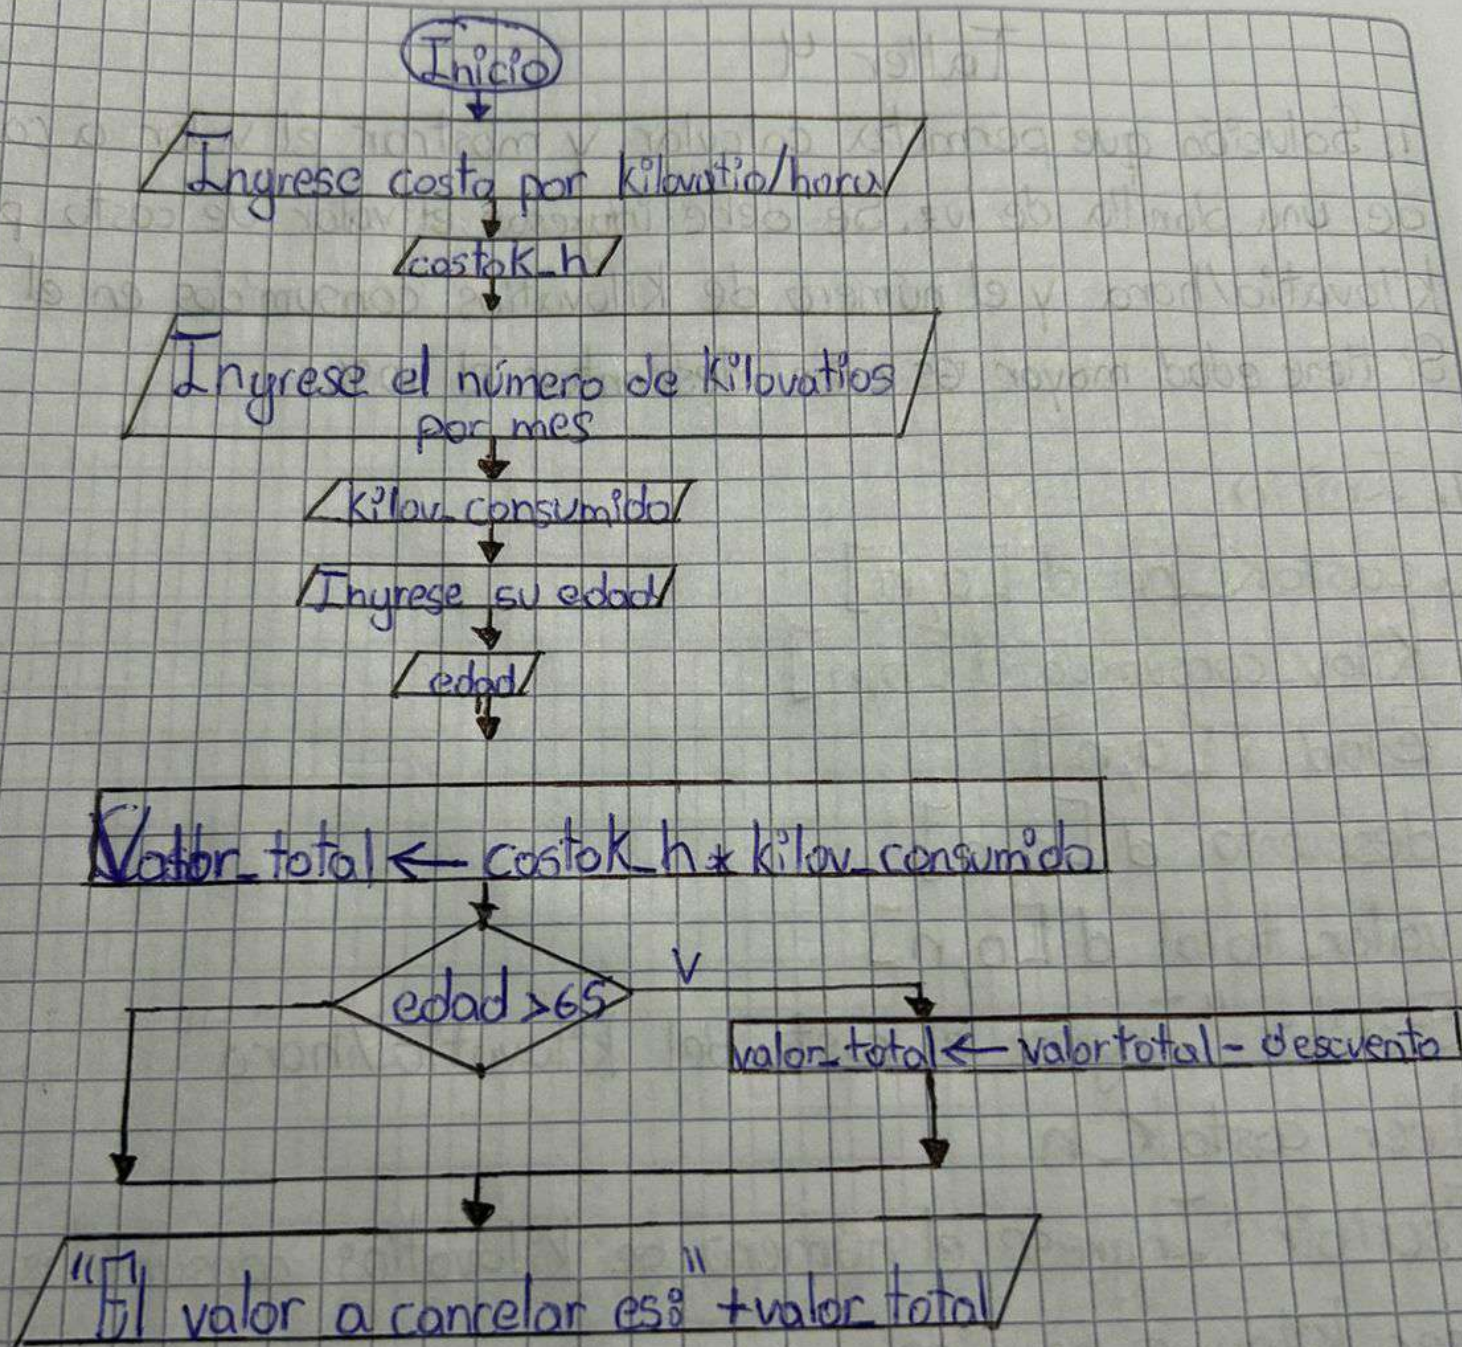 Inicio
Ingrese costo por kilovatio/hora
costok_h
Ingrese el número de kilovatios
por mes
kilov_consumido
Ingrese su edad
edad
Valor_total ← costok_h * kilov_consumido
edad >65
V
valor_total ← valortotal - descuento
"El valor a cancelar es:" +valor_total